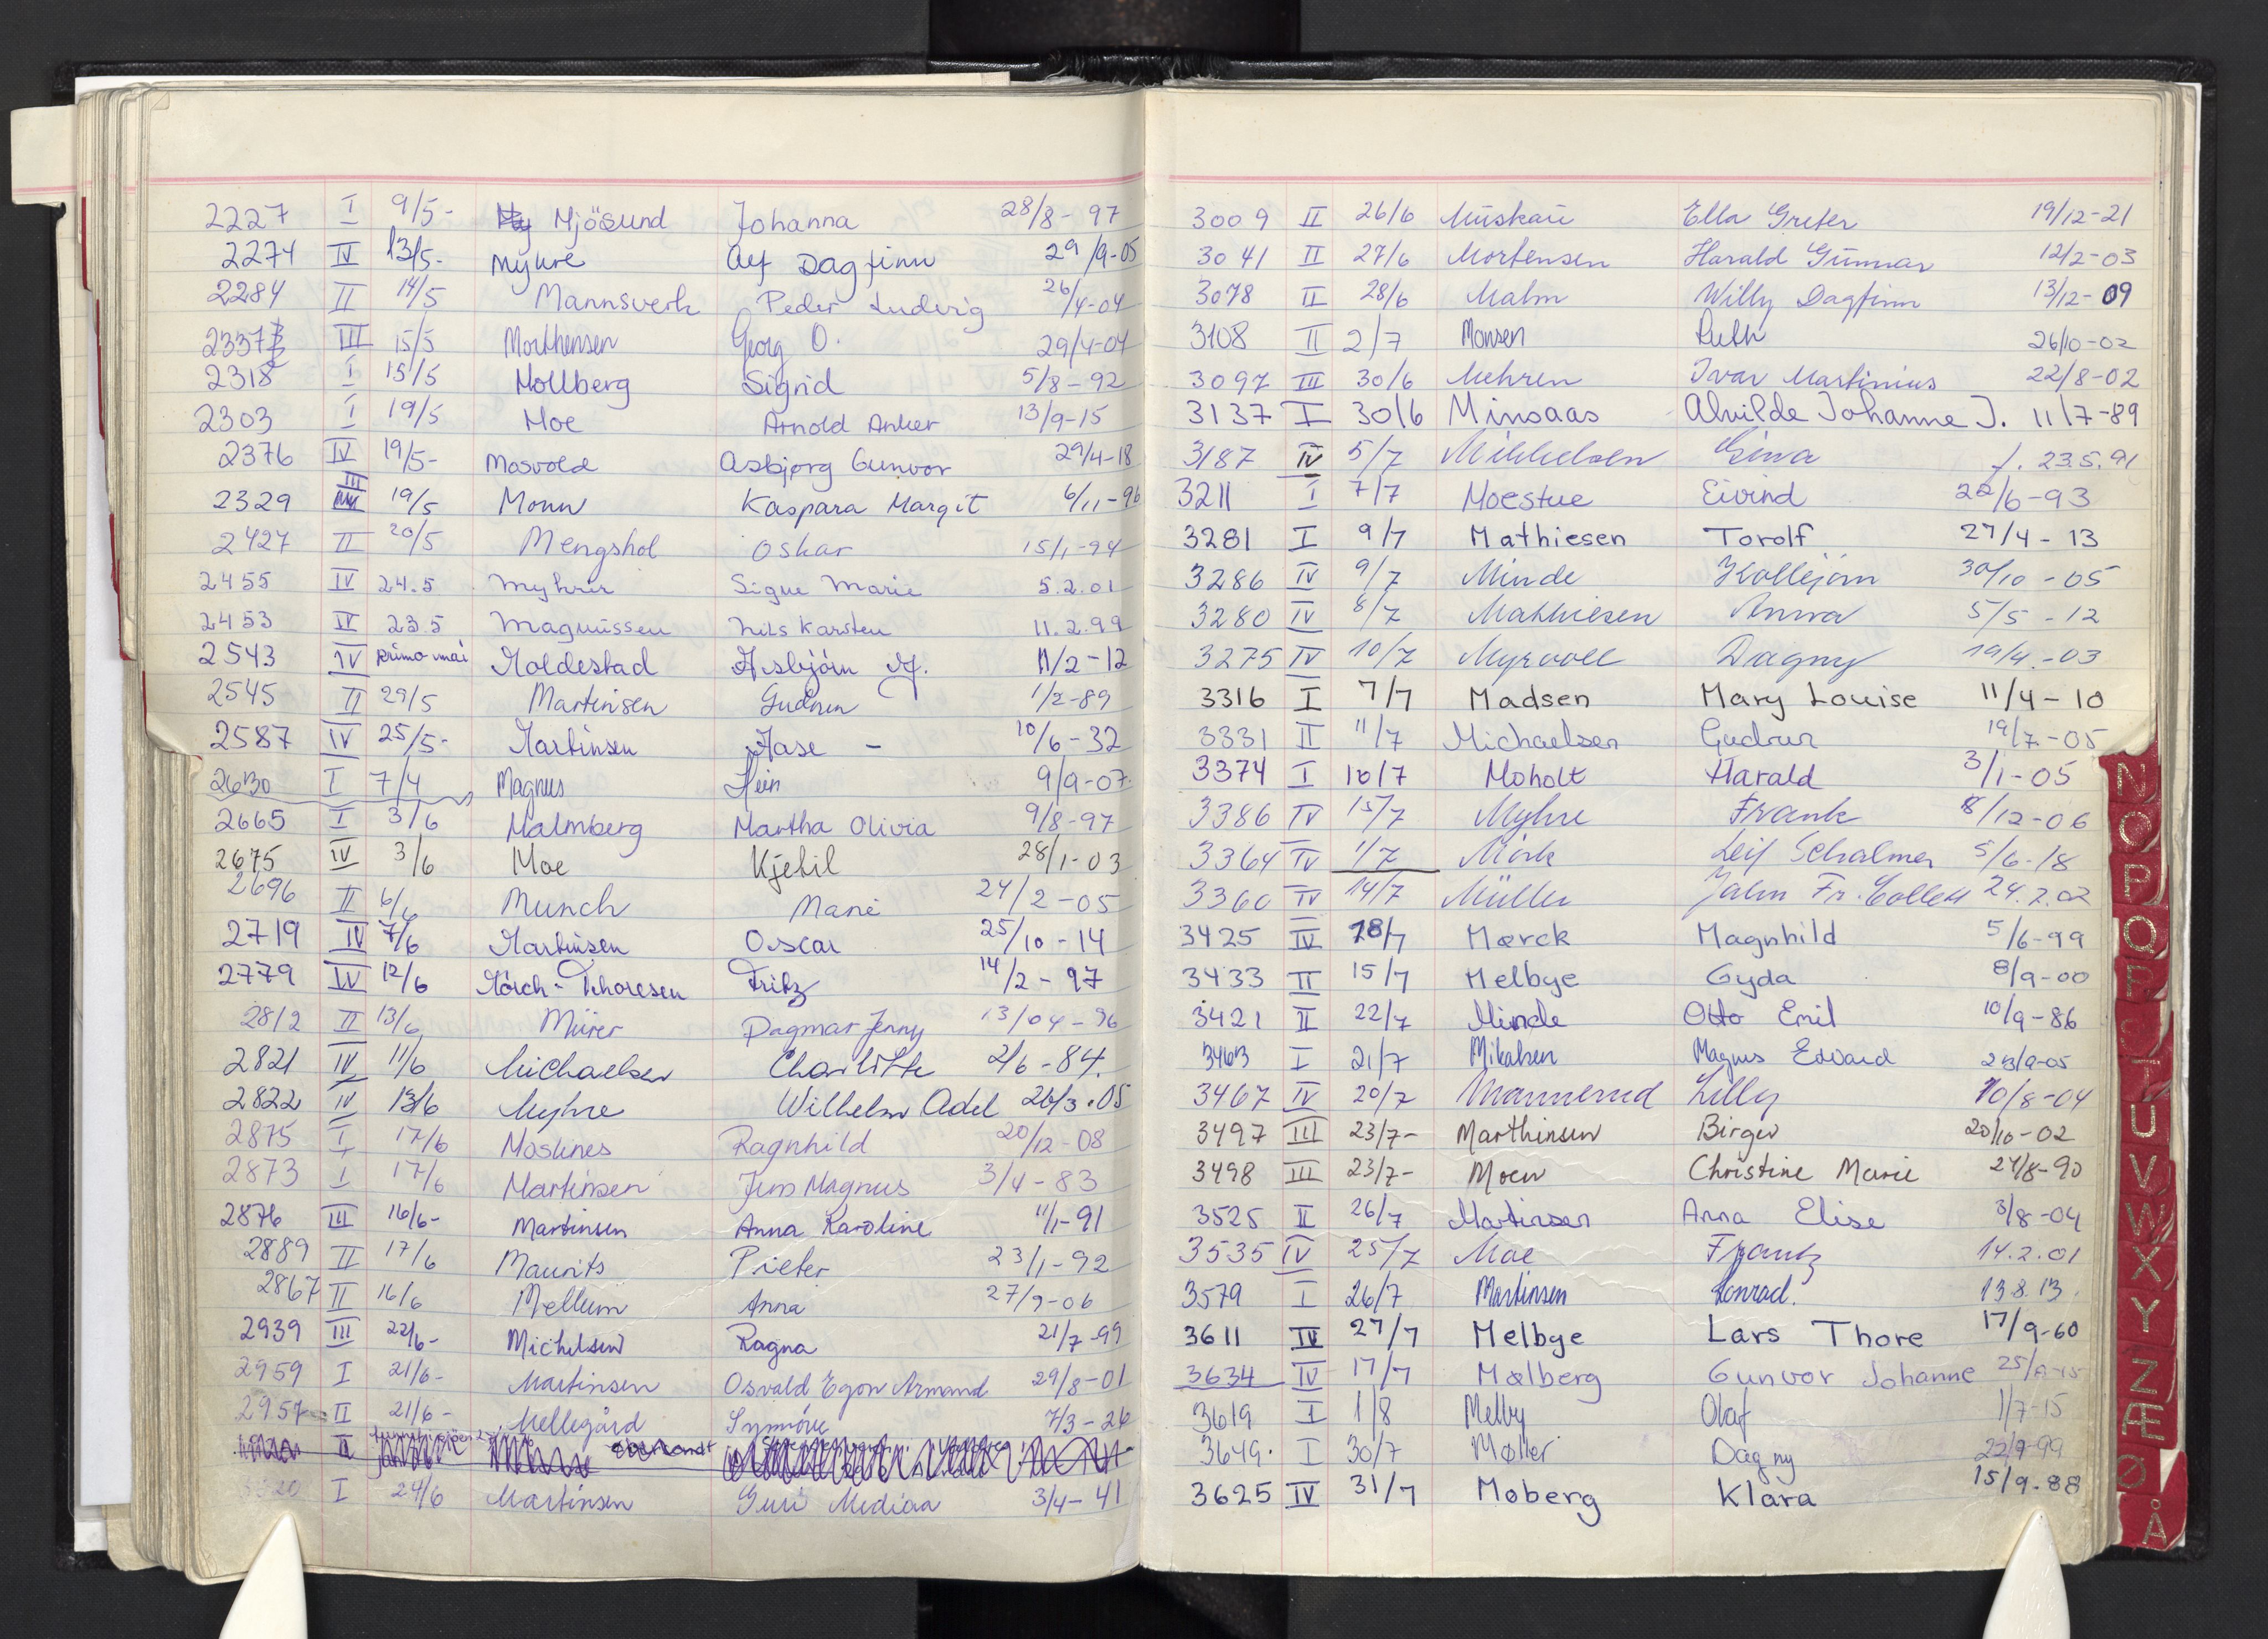 2227 I 9/5- Mjösund Johanna 28/8-97
2274 IV 13/5- Myhre Alf Dagfinn 29/9-05
2284 II 14/5 Mannsverk Peder Ludvig 26/4-04
2337 III 15/5 Morthensen Georg O. 29/4-04
2318 I 15/5 Mollberg Sigrid 5/8-92
2303 I 19/5 Moe Arnold Anker 13/9-15
2376 IV 19/5- Mosvold Asbjørg Gunvor 29/4-18
2329 III 19/5 Monn Kaspara Margit 6/11-96
2427 II 20/5 Mengshol Oskar 15/1-94
2455 IV 24.5 Myhrer Signe Marie 5.2.01
2453 IV 23.5 Magnussen Nils Karsten 11.2.99
2543 IV primo mai Moldestad Asbjörn M. 11/2-12
2545 II 29/5 Martinsen Gudrun 1/2-89
2587 IV 25/5- Martinsen Aase - 10/6-32
2630 I 7/4 Magnus 9/9-07
2665 I 3/6 Malmberg Martha Olivia 9/8-97
2675 IV 3/6 Moe Kjetil 28/1-03
2696 II 6/6 Munch Marie 24/2-05
2719 IV 7/6 Martinsen Oscar 25/10-14
2779 IV 12/6 Mörch-Thoresen Fritz 14/2-97
2812 II 13/6 Mürer Dagmar Jenny 13/04-96
2821 IV 11/6 Michaelsen Charlotte 2/6-84.
2822 IV 13/6 Myhre Wilhelm Adel 26/3.05
2875 I 17/6 Mosknes Ragnhild 20/12-08
2873 I 17/6 Martinsen Jens Magnus 3/4-83
2876 III 16/6- Martinsen Anna Karoline 11/1-91
2889 II 17/6 Maurits Pieter 23/1-92
2867 II 16/6 Mellum Anna 27/9-06
2939 III 22/6- Michelsen Ragna 21/7-99
2959 I 21/6- Martinsen Osvald Egon Armand 29/8-01
2957 II 21/6- Mellegård Synnöve 7/3-26
I 24/6 Martinsen Guri Mediaa 3/4-41
3009 II 26/6 Muskau Ella Greter 19/12-21
3041 II 27/6 Mortensen Harald Gunnar 12/2-03
3078 II 28/6 Malm Willy Dagfinn 13/12-09
3108 II 2/7 Monsen Ruth 26/10-02
3097 III 30/6 Mehren Ivar Martinius 22/8-02
3137 I 30/6 Minsaas Alvilde Johanne J. 11/7-89
3187 IV 5/7 Mikkelsen Gina f. 23.5.91
3211 I 7/7 Moestue Eivind 22/6-93
3281 I 9/7 Mathiesen Torolf 27/4-13
3286 IV 9/7 Minde Kollbjörn 30/10-05
3280 IV 8/7 Mathiesen Anna 5/5-12
3275 IV 10/7 Myrvoll Dagny 19/4.-03
3316 I 7/7 Madsen Mary Louise 11/4-10
3331 II 11/7 Michaelsen Gudrun 19/7.-05
3374 I 10/7 Moholt Harald 3/1-05
3386 IV 15/7 Myhre Frank 8/12-06
3364 IV 1/7 Mörk Leif Schalmer 5/6-18
3360 IV 14/7 Müller John Fr. Collett 24.2.02
3425 IV 18/7 Mørck Magnhild 5/6-99
3433 II 15/7 Melbye Gyda 8/9-00
3421 II 22/7 Minde Otto Emil 10/9-86
3463 I 21/7 Mikalsen Magnus Edvard 23/9-05
3467 IV 20/7 Mannerud Lilly 10/8-04
3497 III 23/7- Marthinsen Birger 20/10-02
3498 III 23/7- Moen Christine Marie 24/8-90
3525 II 26/7 Martinsen Anna Elise 3/8-04
3535 IV 25/7 Moe Frantz 14.2.01
3579 I 26/7 Martinsen Konrad. 13.8.13.
3611 IV 27/7 Melbye Lars Thore 17/9-60
3634 IV 17/7 Mølberg Gunvor Johanne
3619 I 1/8 Melby Olaf 1/7-15
3649. I 30/7 Møller Dagny 22/9-99
3625 IV 31/7 Moberg Klara 15/9-88
N
O
P
Q
R
S
T
U
V
W
X
Y
Z
Æ
Ø
Å